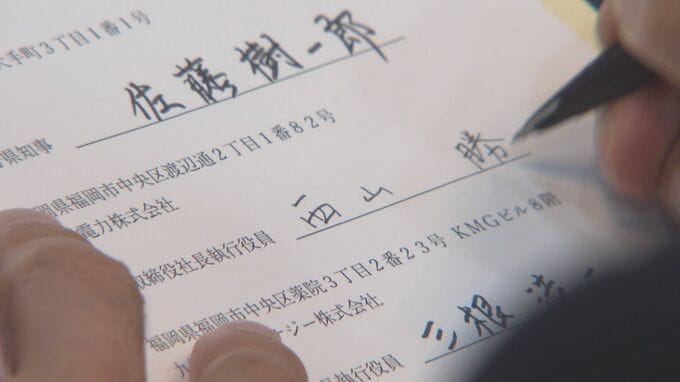 大手町3丁目1番1号
県知事 佐藤樹一郎
県福岡市中央区渡辺通2丁目1番82号
電力株式会社
取締役社長執行役員 西山 勝
福岡県福岡市中央区薬院3丁目2番23号 KMGビル8階
九 ジー株式会社
執行役員 三根